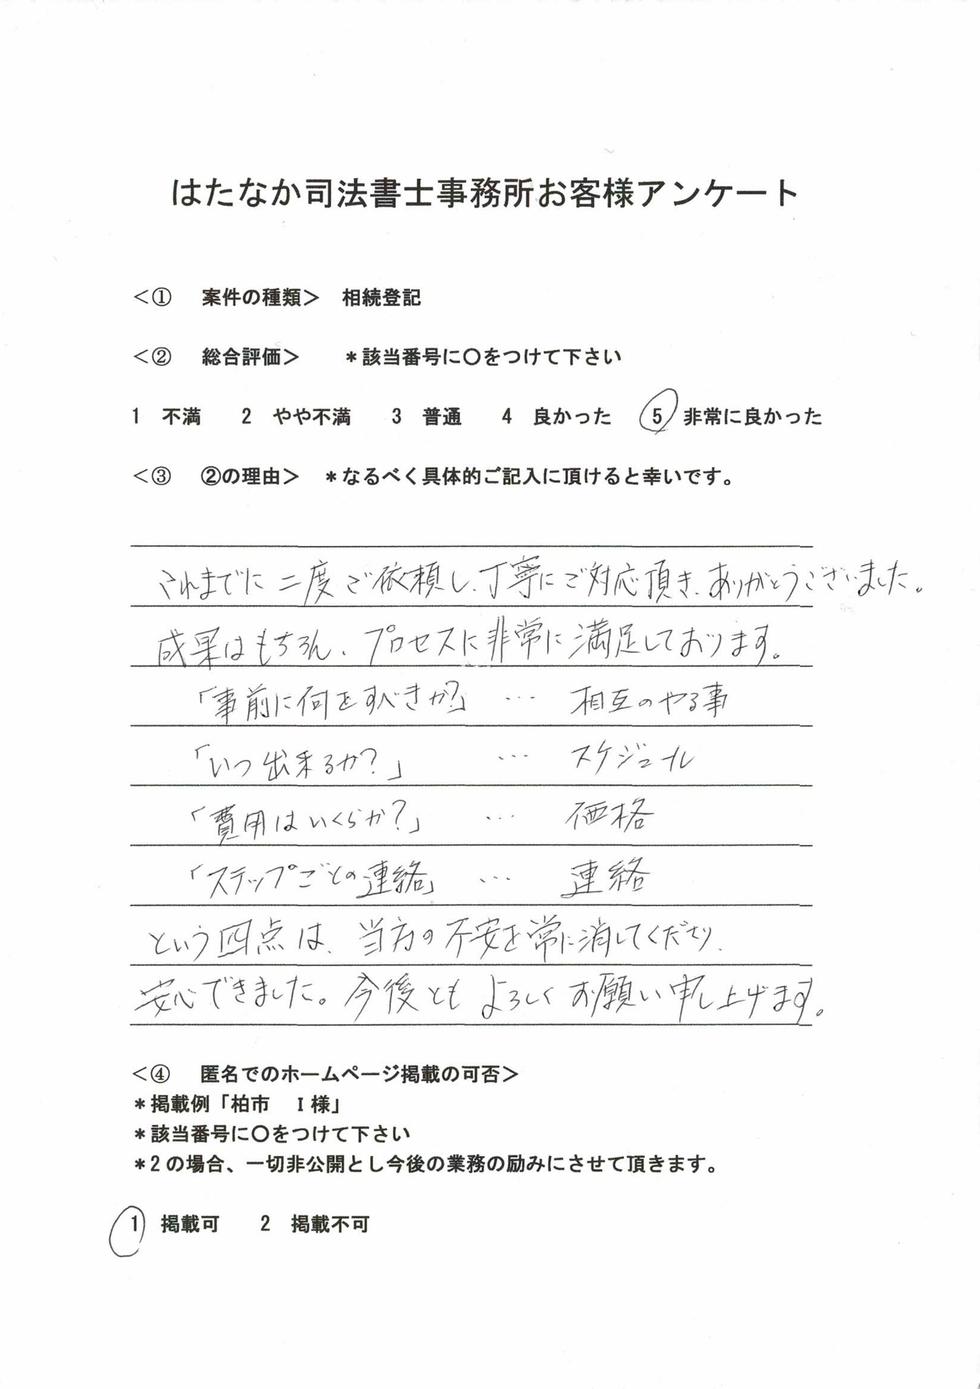 はたなか司法書士事務所お客様アンケート
<①　案件の種類>　相続登記
<②　総合評価>　＊該当番号に〇をつけて下さい
1　不満　2　やや不満　3　普通　4　良かった　5　非常に良かった
<③　②の理由>　＊なるべく具体的ご記入に頂けると幸いです。
これまでに二度ご依頼し、丁寧にご対応頂き、ありがとうございました。
成果はもちろん、プロセスに非常に満足しております。
「事前に何をすべきか?」…　相互のやる事
「いつ出来るか?」…　スケジュール
「費用はいくらか?」…　価格
「ステップごとの連絡」…　連絡
という四点は、当方の不安を常に消してくださり、
安心できました。今後ともよろしくお願い申し上げます。
<④　匿名でのホームページ掲載の可否>
＊掲載例「柏市　I様」
＊該当番号に〇をつけて下さい
＊2の場合、一切非公開とし今後の業務の励みにさせて頂きます。
1　掲載可　2　掲載不可